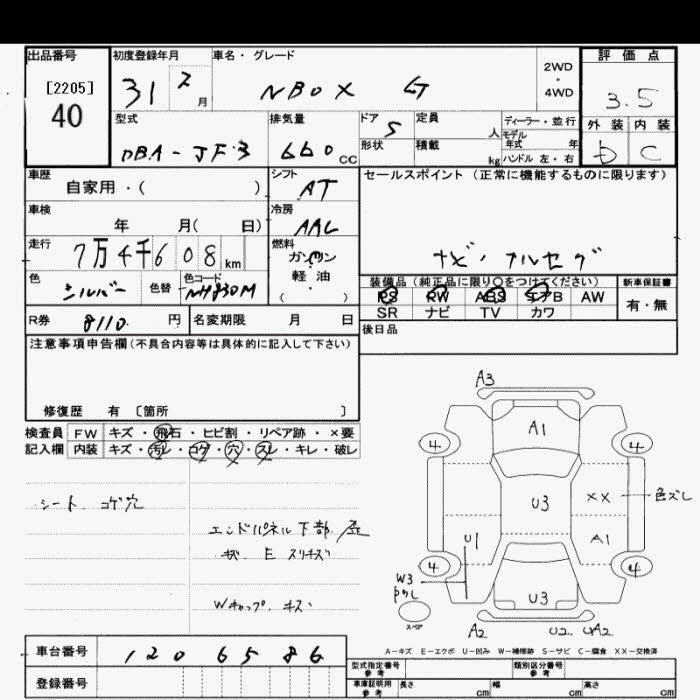 出品番号
[2205]
40
初度登録年月
31 2 月
車名・グレード
NBOX G
2WD
・
4WD
評価点
3.5
外装 内装
D C
型式
DBA-JF3
排気量
660 CC
ドア 5
定員 人
形状
積載 kg
ディーラー・並行
モデル
年式 年
ハンドル 左・右
車歴
自家用・( )
シフト
AT
セールスポイント (正常に機能するものに限ります)
ナビ・フルセグ
車検
年 月( 日)
冷房
AAC
走行
7万4千608 km
燃料
ガソリン
軽油
( )
色
シルバー
色替
色コード
NH830M
装備品 (純正品に限り○をつけてください)
PS PW ABS エアB AW
SR ナビ TV カワ
新車保証書
有・無
R券 8110. 円
名変期限 月 日
後日品
注意事項申告欄(不具合内容等は具体的に記入して下さい)
修復歴 有 〔箇所 〕
検査員
記入欄
FW キズ・飛石・ヒビ割・リペア跡・×要
内装 キズ・汚レ・コゲ・穴・スレ・キレ・破レ
シート コゲ穴
エンドパネル下部 歪
キズ E スリキズ
Wキャップ キズ
A3
A1
4
4
U3
XX
色ズレ
U1
A1
4
4
W3
U3
スペア
A2
U2 A2
A-キズ E-エクボ U-凹み W-補修跡 S-サビ C-腐食 XX-交換済
車台番号 1206586
登録番号
型式指定番号
参考
類別区分番号
参考
車庫証明用
参考
長さ cm
幅 cm
高さ cm